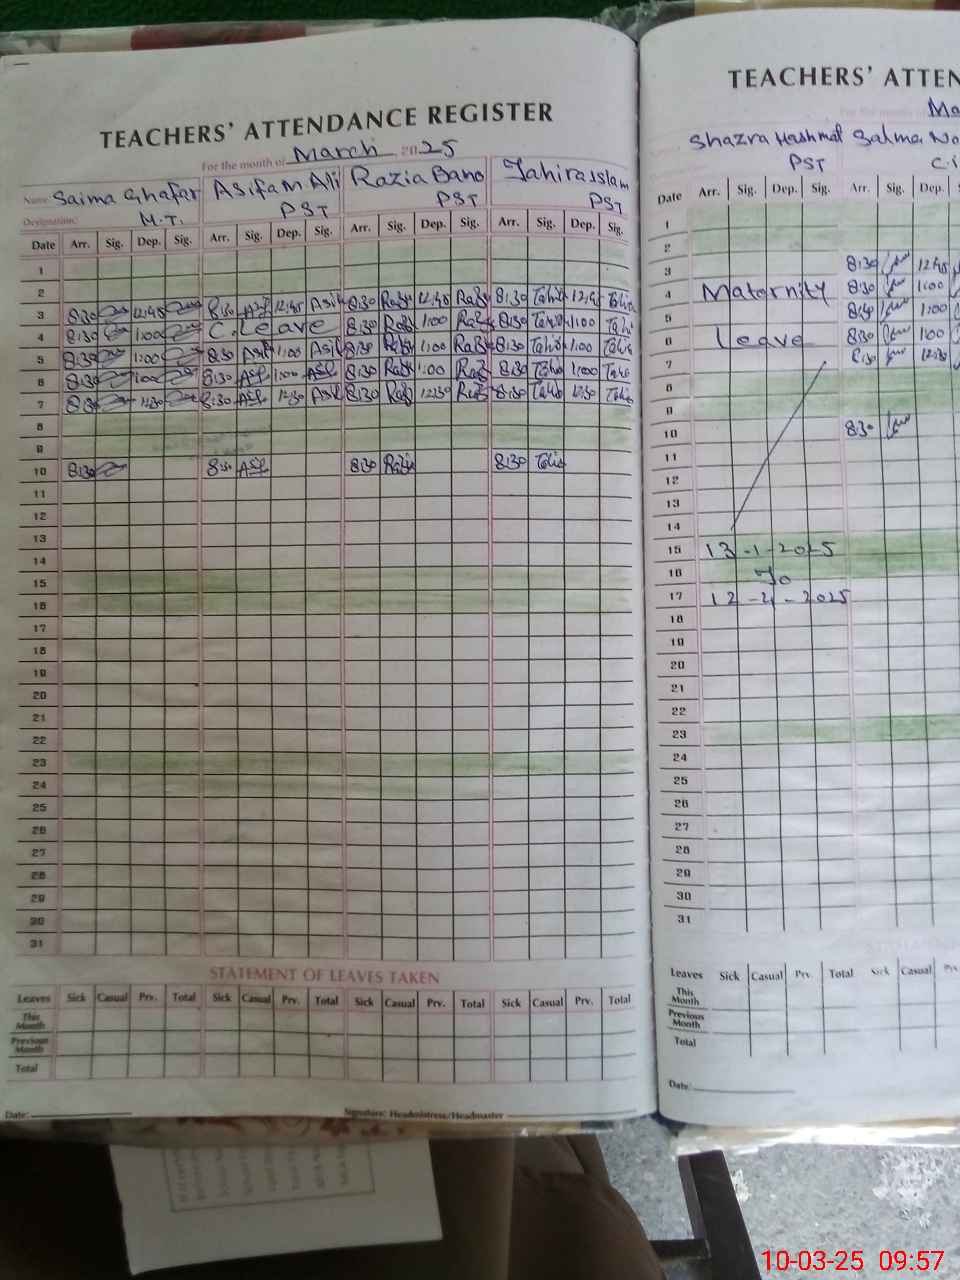 TEACHERS' ATTENDANCE REGISTER
For the month of March 2025
Name Saima Ghafar Asifa M Ali Razia Bano Tahira Islam
Designation: M.T. PST PST PST
Date Arr. Sig. Dep. Sig. Arr. Sig. Dep. Sig. Arr. Sig. Dep. Sig. Arr. Sig. Dep. Sig.
1
2
3 8:30 12:45 8:30 Asf 12:45 Asif 8:30 Razi 12:45 Razi 8:30 Tahir 12:45 Tahir
4 8:30 1:00 C. Leave 8:30 Razi 1:00 Razi 8:30 Tahir 1:00 Tahi
5 8:30 1:00 8:30 Asif 1:00 Asif 8:30 Razi 1:00 Razi 8:30 Tahir 1:00 Tahir
6 8:30 1:00 8:30 Asf 1:00 Asf 8:30 Razi 1:00 Razi 8:30 Tahir 1:00 Tahir
7 8:30 12:30 8:30 Asf 12:30 Asif 8:30 Razi 12:30 Razi 8:30 Tahir 12:30 Tahir
8
9
10 8:30 8:30 Asf 8:30 Razi 8:30 Tahir
11
12
13
14
15
16
17
18
19
20
21
22
23
24
25
26
27
28
29
30
31
STATEMENT OF LEAVES TAKEN
Leaves Sick Casual Prv. Total Sick Casual Prv. Total Sick Casual Prv. Total Sick Casual Prv. Total
This Month
Previous Month
Total
Date: Signature: Headmistress/Headmaster
TEACHERS' ATTEN
For the month of Ma
Shazra Hashmat Salma No
PST C.I
Date Arr. Sig. Dep. Sig. Arr. Sig. Dep. S
1
2
3 8:30 12:45
4 Maternity 8:30 1:00
5 8:30 1:00
6 Leave 8:30 1:00
7 8:30 12:30
8
9
10 8:30
11
12
13
14
15 13-1-2025
16 To
17 12-4-2025
18
19
20
21
22
23
24
25
26
27
28
29
30
31
Leaves Sick Casual Prv. Total Sick Casual Prv
This Month
Previous Month
Total
Date:
10-03-25 09:57